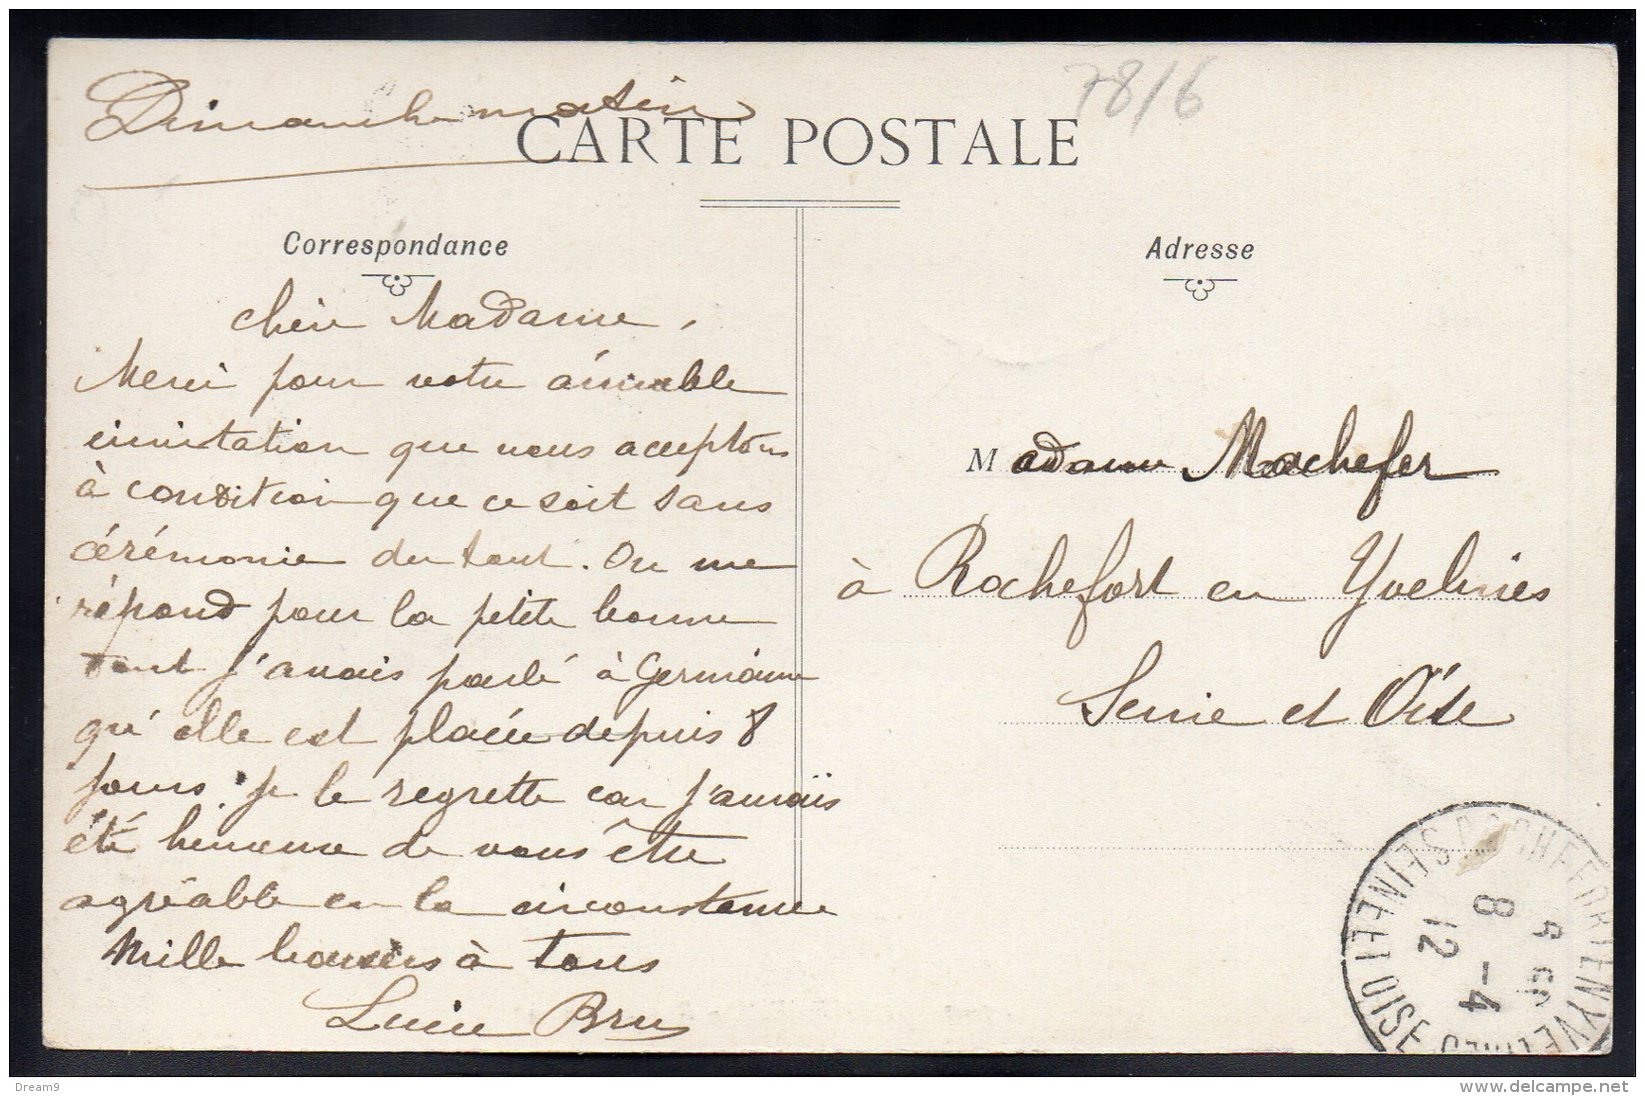 78/6
Dimanche matin
CARTE POSTALE
Correspondance
Chère Madame,
Merci pour votre aimable
invitation que nous acceptons
à condition que ce soit sans
cérémonie du tout. On me
répond pour la petite bonne
dont j'avais parlé à Germaine
qu'elle est placée depuis 8
jours. je le regrette car j'aurais
été heureuse de vous être
agréable en la circonstance
Mille baisers à tous
Lucie Brus
Adresse
Madame Machefer
à Rochefort en Yvelines
Seine et Oise
ROCHEFORT EN YVELINES
8 - 4
12
SEINE ET OISE
Dream9
delcampe.net